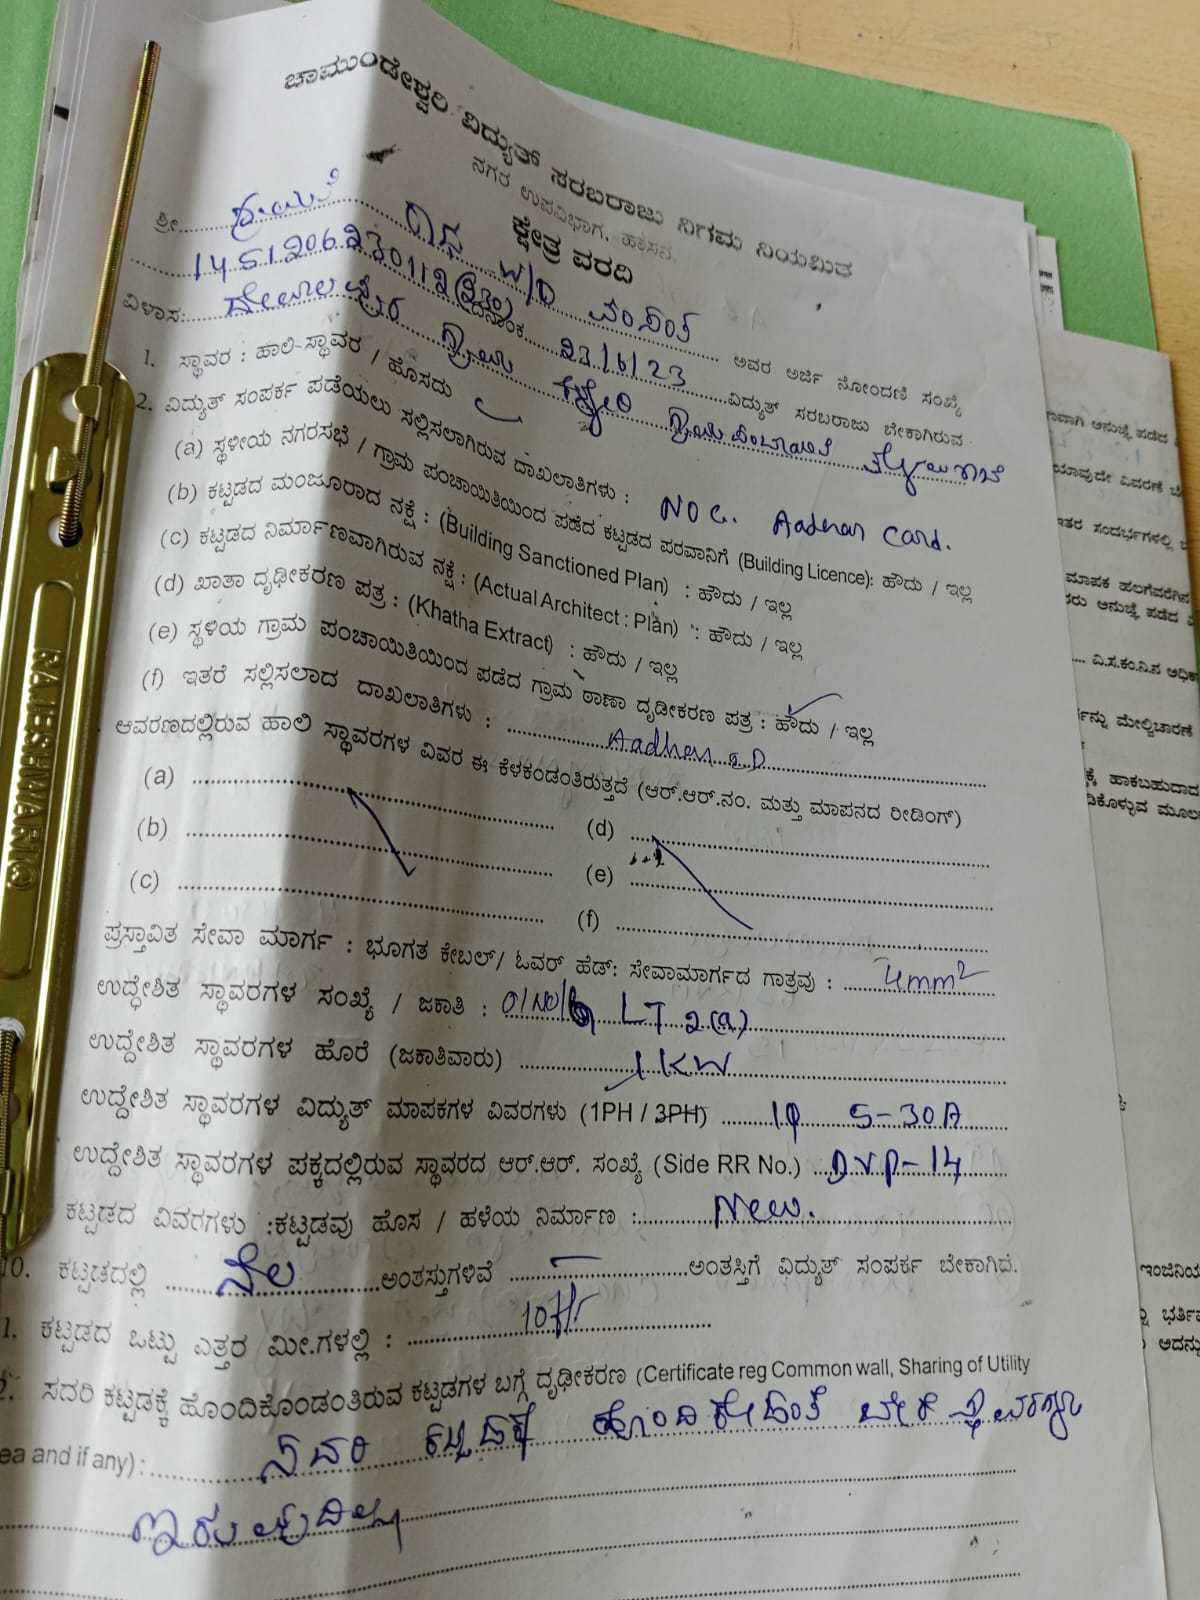 ಚಾಮುಂಡೇಶ್ವರಿ ವಿದ್ಯುತ್ ಸರಬರಾಜು ನಿಗಮ ನಿಯಮಿತ
ನಗರ ಉಪವಿಭಾಗ, ಹಾಸನ.
ಕ್ಷೇತ್ರ ವರದಿ
ಶ್ರೀ ರಾಧ W/O ವಸಂತ ಅವರ ಅರ್ಜಿ ನೋಂದಣಿ ಸಂಖ್ಯೆ
ದಿನಾಂಕ 23/6/23 ವಿದ್ಯುತ್ ಸರಬರಾಜು ಬೇಕಾಗಿರುವ
ವಿಳಾಸ: ಗ್ರಾಮ ಗ್ರಾಮಪಂಚಾಯಿತಿ
1. ಸ್ಥಾವರ : ಹಾಲಿ-ಸ್ಥಾವರ / ಹೊಸದು
2. ವಿದ್ಯುತ್ ಸಂಪರ್ಕ ಪಡೆಯಲು ಸಲ್ಲಿಸಲಾಗಿರುವ ದಾಖಲಾತಿಗಳು : NOC. Aadhar Card.
(a) ಸ್ಥಳೀಯ ನಗರಸಭೆ / ಗ್ರಾಮ ಪಂಚಾಯಿತಿಯಿಂದ ಪಡೆದ ಕಟ್ಟಡದ ಪರವಾನಿಗೆ (Building Licence): ಹೌದು / ಇಲ್ಲ
(b) ಕಟ್ಟಡದ ಮಂಜೂರಾದ ನಕ್ಷೆ : (Building Sanctioned Plan) : ಹೌದು / ಇಲ್ಲ
(c) ಕಟ್ಟಡದ ನಿರ್ಮಾಣವಾಗಿರುವ ನಕ್ಷೆ : (Actual Architect : Plan) : ಹೌದು / ಇಲ್ಲ
(d) ಖಾತಾ ದೃಢೀಕರಣ ಪತ್ರ : (Khatha Extract) : ಹೌದು / ಇಲ್ಲ
(e) ಸ್ಥಳಿಯ ಗ್ರಾಮ ಪಂಚಾಯಿತಿಯಿಂದ ಪಡೆದ ಗ್ರಾಮ ಠಾಣಾ ದೃಡೀಕರಣ ಪತ್ರ : ಹೌದು / ಇಲ್ಲ
(f) ಇತರೆ ಸಲ್ಲಿಸಲಾದ ದಾಖಲಾತಿಗಳು : Aadhar ID
ಆವರಣದಲ್ಲಿರುವ ಹಾಲಿ ಸ್ಥಾವರಗಳ ವಿವರ ಈ ಕೆಳಕಂಡಂತಿರುತ್ತದೆ (ಆರ್.ಆರ್.ನಂ. ಮತ್ತು ಮಾಪನದ ರೀಡಿಂಗ್)
(a) (d)
(b) (e)
(c) (f)
ಪ್ರಸ್ತಾವಿತ ಸೇವಾ ಮಾರ್ಗ : ಭೂಗತ ಕೇಬಲ್/ ಓವರ್ ಹೆಡ್: ಸೇವಾಮಾರ್ಗದ ಗಾತ್ರವು : 4mm²
ಉದ್ದೇಶಿತ ಸ್ಥಾವರಗಳ ಸಂಖ್ಯೆ / ಜಕಾತಿ : LT 2(a)
ಉದ್ದೇಶಿತ ಸ್ಥಾವರಗಳ ಹೊರೆ (ಜಕಾತಿವಾರು) 1KW
ಉದ್ದೇಶಿತ ಸ್ಥಾವರಗಳ ವಿದ್ಯುತ್ ಮಾಪಕಗಳ ವಿವರಗಳು (1PH / 3PH) 1φ 5-30A
ಉದ್ದೇಶಿತ ಸ್ಥಾವರಗಳ ಪಕ್ಕದಲ್ಲಿರುವ ಸ್ಥಾವರದ ಆರ್.ಆರ್. ಸಂಖ್ಯೆ (Side RR No.) DVP-14
ಕಟ್ಟಡದ ವಿವರಗಳು :ಕಟ್ಟಡವು ಹೊಸ / ಹಳೆಯ ನಿರ್ಮಾಣ : New.
10. ಕಟ್ಟಡದಲ್ಲಿ ನೆಲ ಅಂತಸ್ತುಗಳಿವೆ – ಅಂತಸ್ತಿಗೆ ವಿದ್ಯುತ್ ಸಂಪರ್ಕ ಬೇಕಾಗಿದೆ.
1. ಕಟ್ಟಡದ ಒಟ್ಟು ಎತ್ತರ ಮೀ.ಗಳಲ್ಲಿ :
2. ಸದರಿ ಕಟ್ಟಡಕ್ಕೆ ಹೊಂದಿಕೊಂಡಂತಿರುವ ಕಟ್ಟಡಗಳ ಬಗ್ಗೆ ದೃಢೀಕರಣ (Certificate reg Common wall, Sharing of Utility
ea and if any) : ಸದರಿ ಕಟ್ಟಡಕ್ಕೆ ಬೇರೆ
ಇರುವುದಿಲ್ಲ
RAJESHWARI